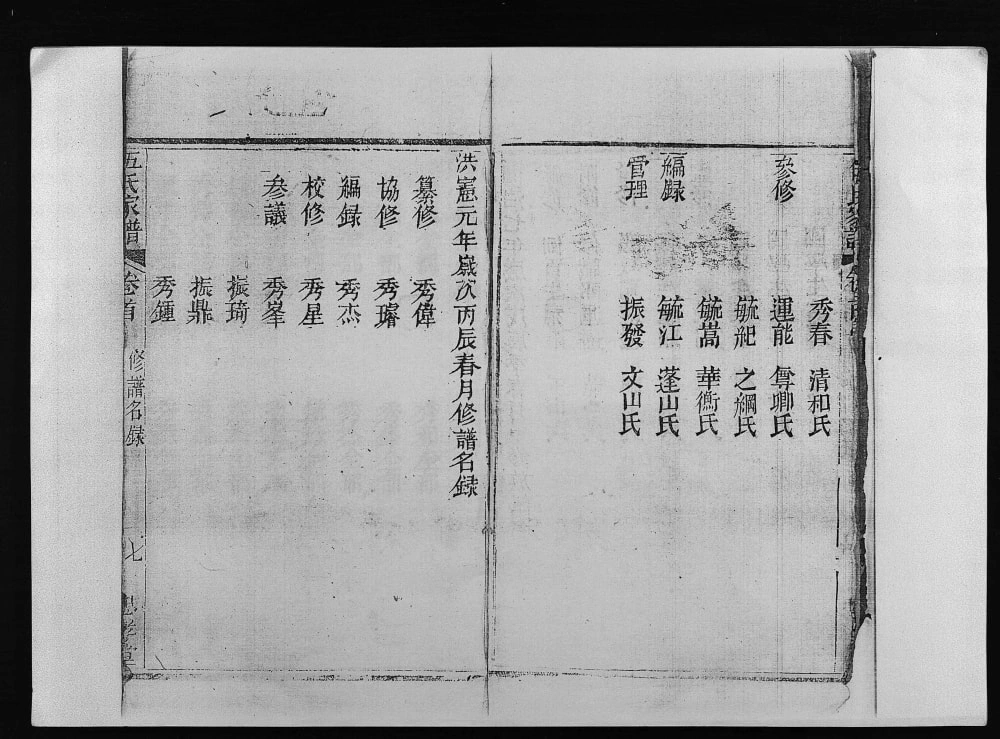 秀春 清和氏
參修 運能 㑺卿氏
毓紀 之綱氏
毓嵩 華衡氏
編録 毓江 蓬山氏
管理 振發 文山氏
洪憲元年歲次丙辰春月修譜名録
纂修 秀偉
協修 秀璿
編録 秀杰
校修 秀星
參議 秀峯
振琦
振鼎
秀鍾
伍氏家譜 卷首 修譜名録 七